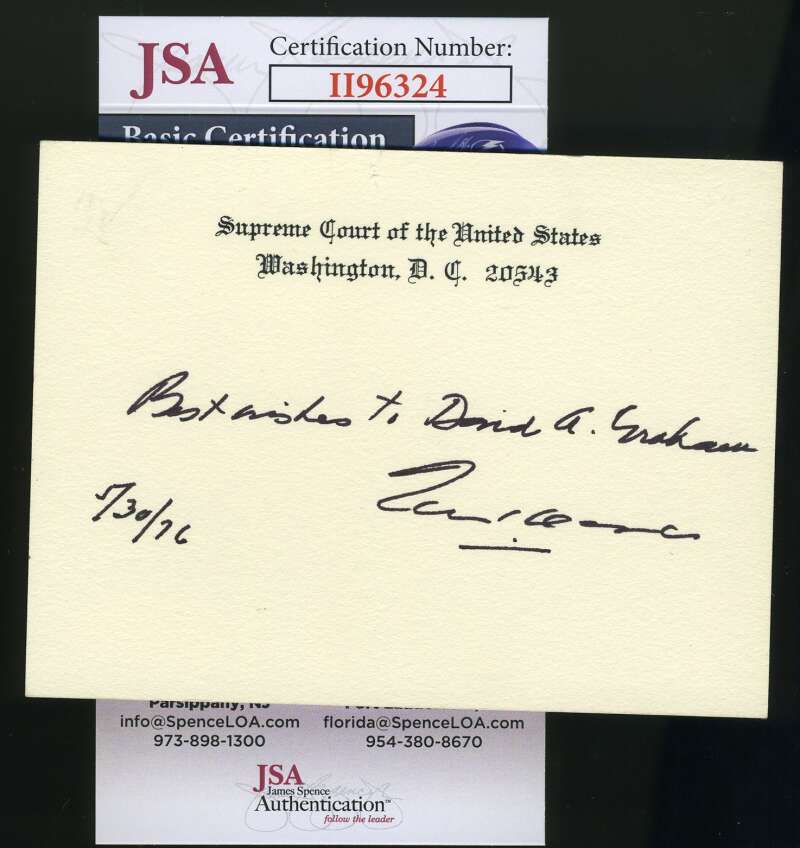 JSA
Certification Number:
II96324
Basic Certification
Supreme Court of the United States
Washington, D. C. 20543
Best wishes to David A. Graham
7/30/76
Parsippany, NJ
info@SpenceLOA.com florida@SpenceLOA.com
973-898-1300 954-380-8670
JSA
James Spence
Authentication™
follow the leader